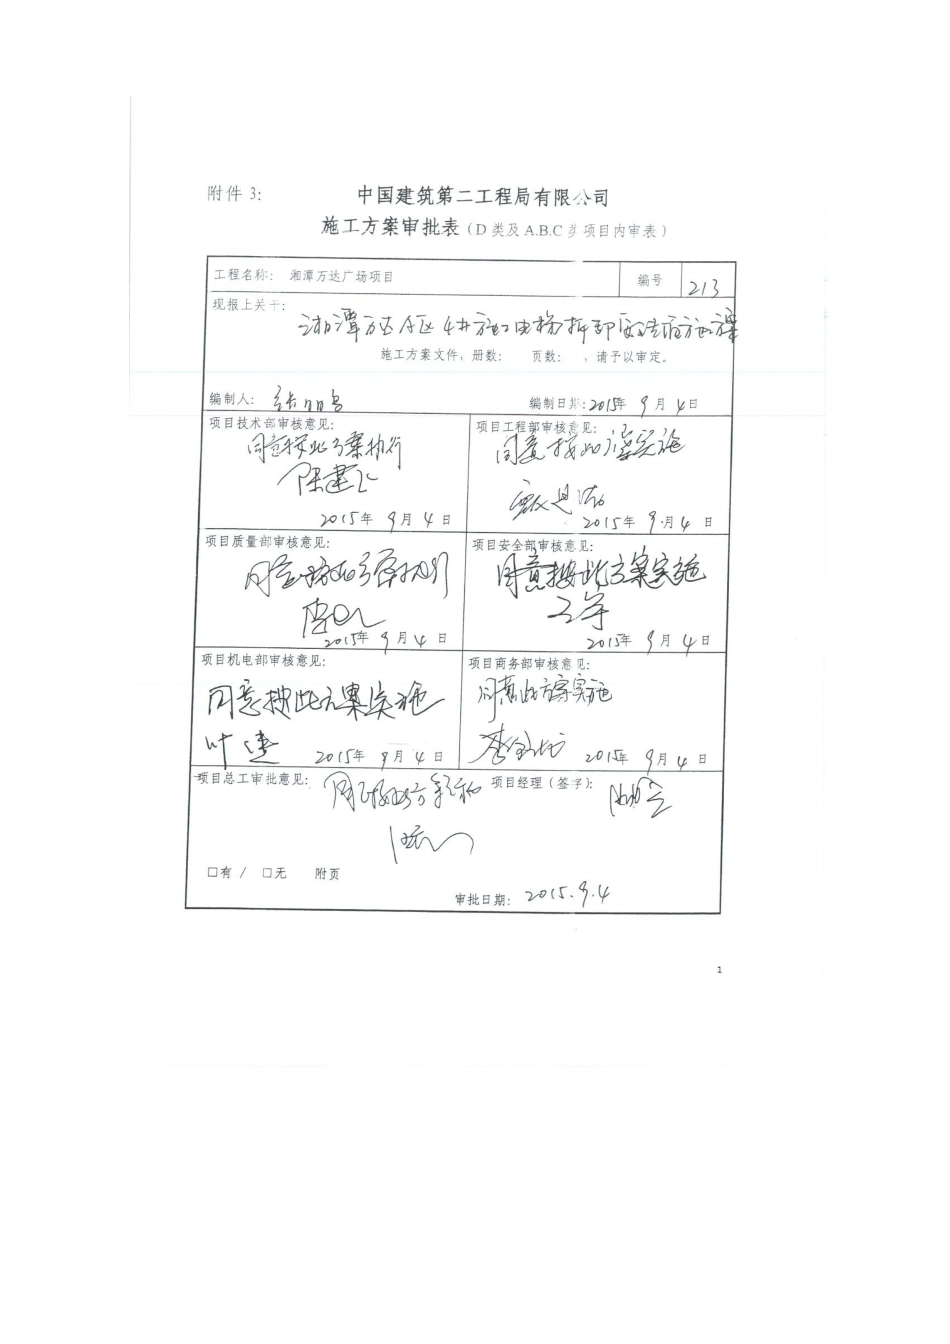 附件 3:
中国建筑第二工程局有限公司
施工方案审批表（D 类及 A.B.C 类项目内审表）
工程名称: 湘潭万达广场项目
编号 213
现报上关于:
湘潭万达A区4#施工电梯拆卸
施工方案文件，册数:  页数:  ，请予以审定。
编制人:
编制日期: 2015年 9 月 4 日
项目技术部审核意见:
同意按此方案执行
陈建飞
2015年 9月 4 日
项目工程部审核意见:
同意按此方案实施
2015年 9月 4 日
项目质量部审核意见:
同意按此方案执行
2015年 9月 4 日
项目安全部审核意见:
同意按此方案实施
王军
2015年 9月 4 日
项目机电部审核意见:
同意按此方案实施
叶
2015年 9月 4 日
项目商务部审核意见:
同意此方案实施
李
2015年 9月 4 日
项目总工审批意见:
同意按此方案
项目经理（签字）:
□有 / □无 附页
审批日期: 2015.9.4
1